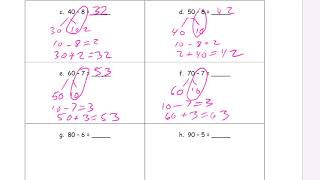 c. 40 - 8 = 32
30 10
10-8=2
30+2=32
d. 50 - 8 = 42
40 10
10-8=2
2+40=42
e. 60 - 7 = 53
50 10
10-7=3
50+3=53
f. 70 - 7 = ____
60 10
10-7=3
60+3=63
g. 80 - 6 = ____
h. 90 - 5 = ____